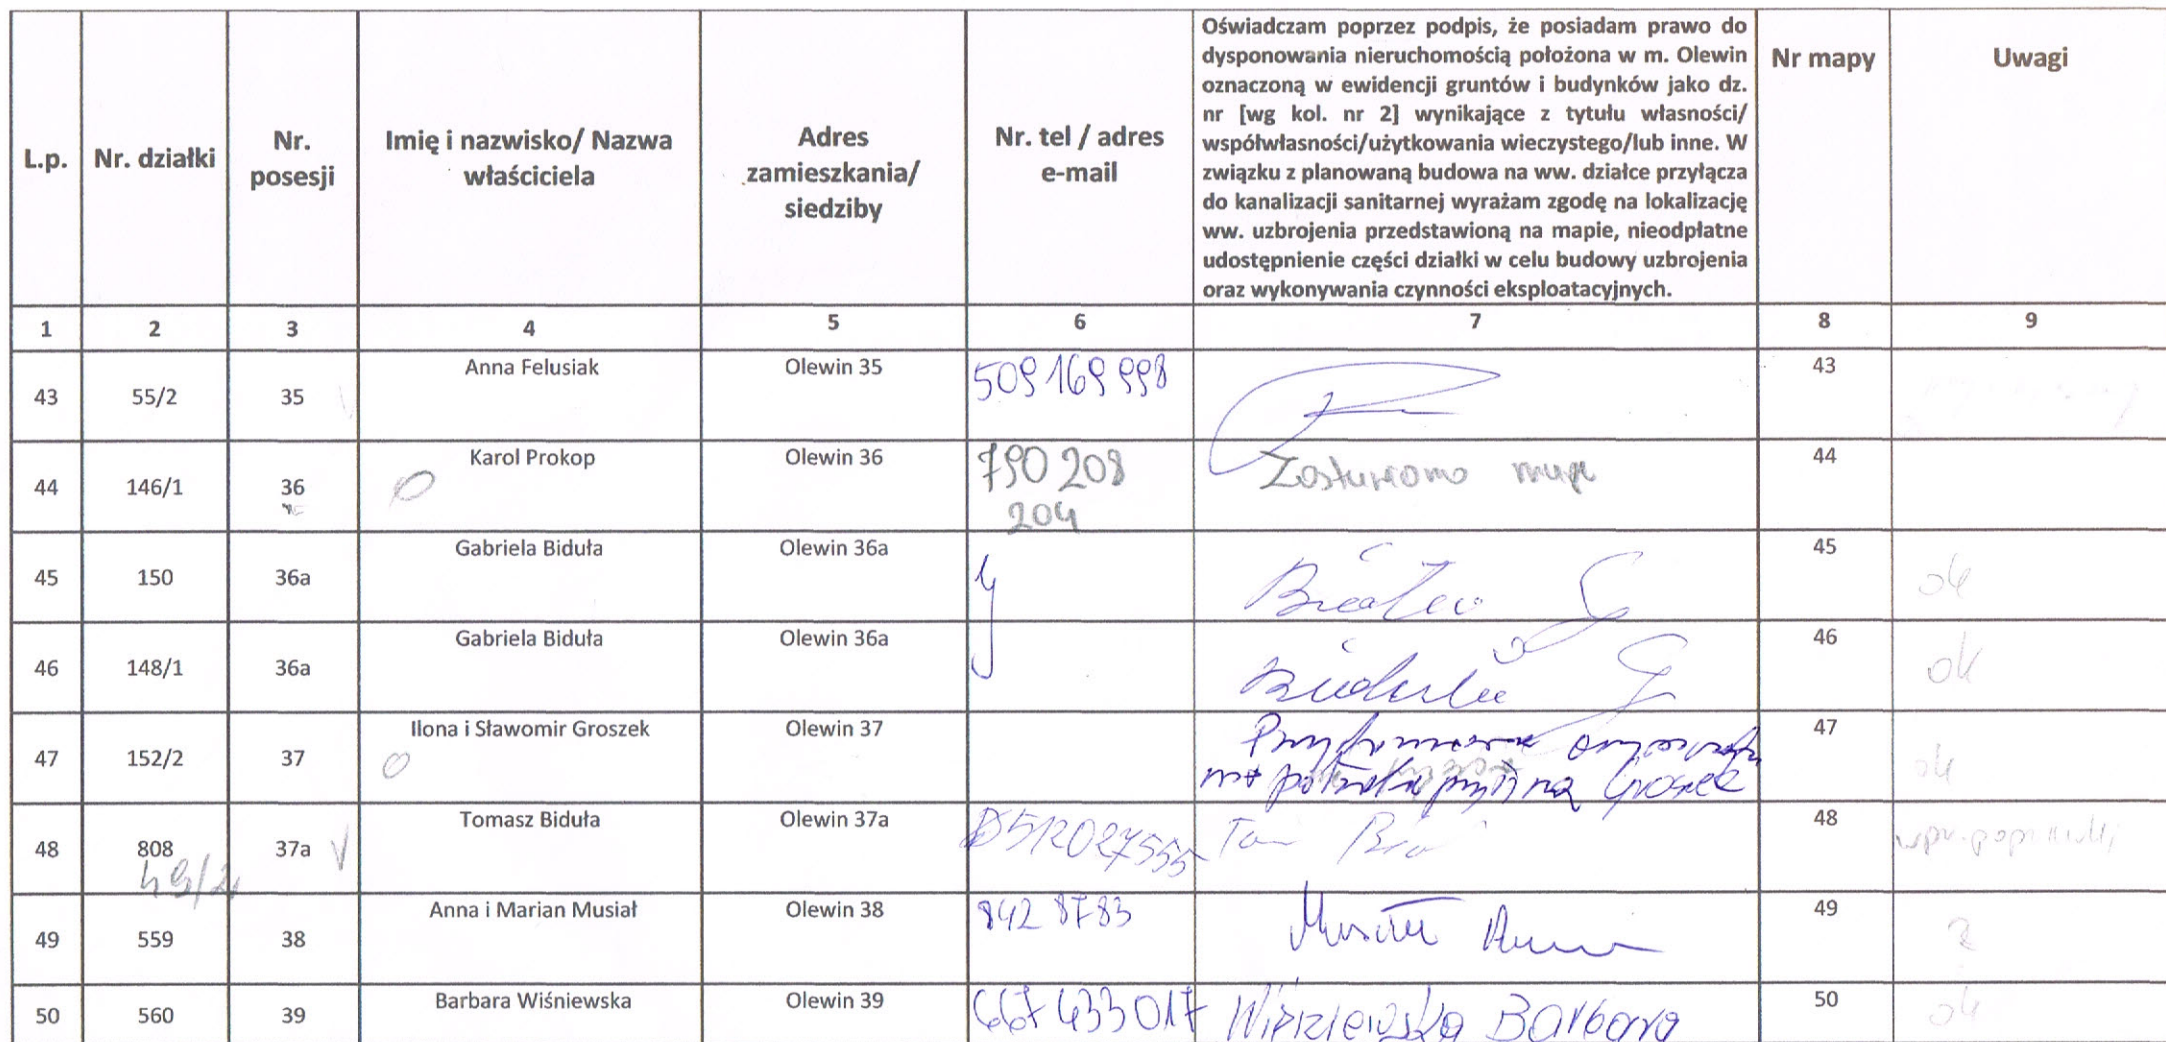 L.p.
Nr. działki
Nr.
posesji
Imię i nazwisko/ Nazwa
właściciela
Adres
zamieszkania/
siedziby
Nr. tel / adres
e-mail
Oświadczam poprzez podpis, że posiadam prawo do
dysponowania nieruchomością położona w m. Olewin
oznaczoną w ewidencji gruntów i budynków jako dz.
nr [wg kol. nr 2] wynikające z tytułu własności/
współwłasności/użytkowania wieczystego/lub inne. W
związku z planowaną budowa na ww. działce przyłącza
do kanalizacji sanitarnej wyrażam zgodę na lokalizację
ww. uzbrojenia przedstawioną na mapie, nieodpłatne
udostępnienie części działki w celu budowy uzbrojenia
oraz wykonywania czynności eksploatacyjnych.
Nr mapy
Uwagi
1 2 3 4 5 6 7 8 9
43 55/2 35 Anna Felusiak Olewin 35 509 169 998 43
44 146/1 36 Karol Prokop Olewin 36 790 208 204 44
45 150 36a Gabriela Biduła Olewin 36a 45 ok
46 148/1 36a Gabriela Biduła Olewin 36a 46 ok
47 152/2 37 Ilona i Sławomir Groszek Olewin 37 47 ok
48 808 49/2 37a Tomasz Biduła Olewin 37a 512027555 48
49 559 38 Anna i Marian Musiał Olewin 38 842 8783 Musiał Anna 49 2
50 560 39 Barbara Wiśniewska Olewin 39 667 433 017 Wiśniewska Barbara 50 ok